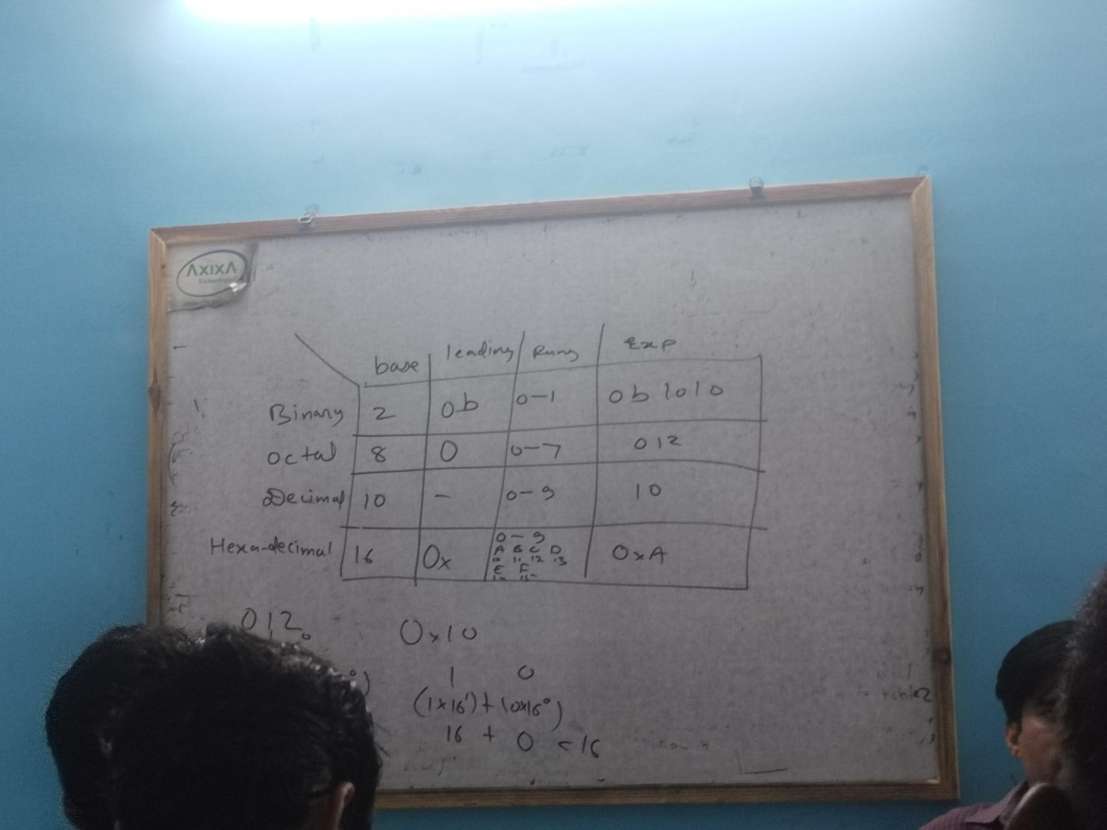 AXIXA
base leading Rung Exp
Binary 2 0b 0-1 0b1010
octal 8 0 0-7 012
Decimal 10 - 0-9 10
Hexa-decimal 16 0x 0-9 0xA
A B C D
10 11 12 13
E F
012 0x10
1 0
(1x16¹)+(0x16⁰)
16 + 0 = 16